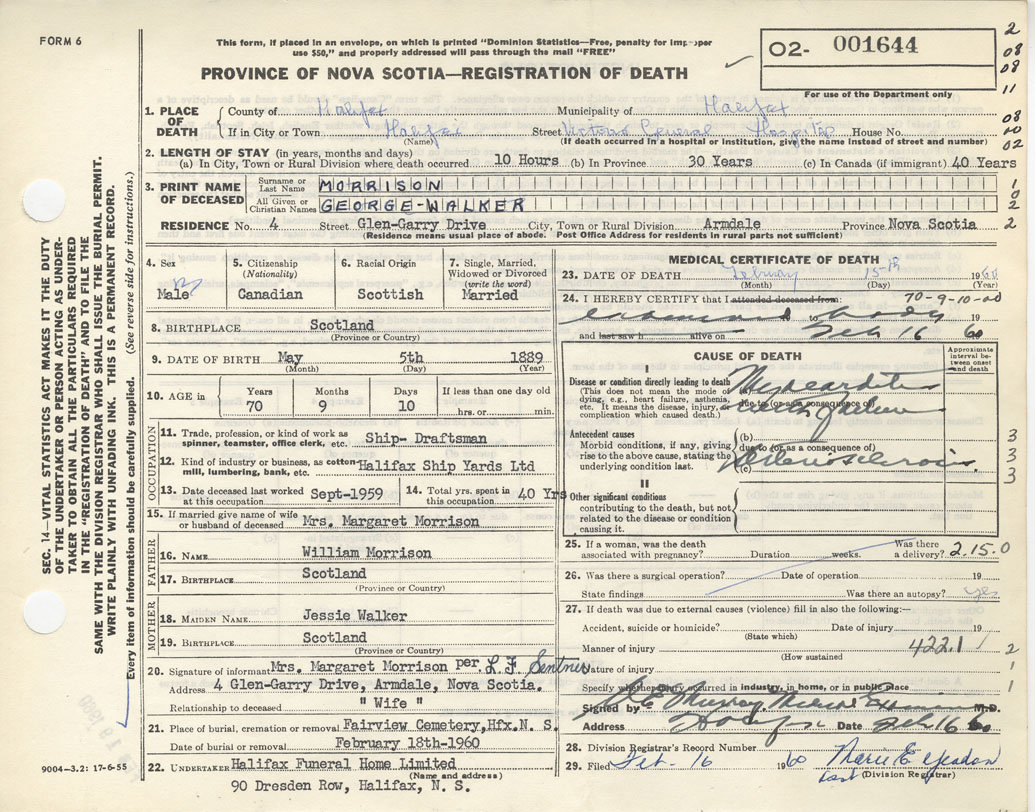 FORM 6
This form, if placed in an envelope, on which is printed "Dominion Statistics—Free, penalty for improper
use $50," and properly addressed will pass through the mail "FREE"
PROVINCE OF NOVA SCOTIA—REGISTRATION OF DEATH
02- 001644
For use of the Department only
2
08
08
11
1. PLACE OF DEATH County of Halifax Municipality of Halifax 08
If in City or Town Halifax Street Victoria General Hospital House No. 00
(Name) (If death occurred in a hospital or institution, give the name instead of street and number) 02
2. LENGTH OF STAY (in years, months and days)
(a) In City, Town or Rural Division where death occurred 10 Hours (b) In Province 30 Years (c) In Canada (if immigrant) 40 Years
3. PRINT NAME OF DECEASED Surname or Last Name MORRISON 1
All Given or Christian Names GEORGE-WALKER 2
RESIDENCE No. 4 Street Glen-Garry Drive City, Town or Rural Division Armdale Province Nova Scotia 2
(Residence means usual place of abode. Post Office Address for residents in rural parts not sufficient)
4. Sex Male
5. Citizenship (Nationality) Canadian
6. Racial Origin Scottish
7. Single, Married, Widowed or Divorced (write the word) Married
8. BIRTHPLACE Scotland
(Province or Country)
9. DATE OF BIRTH May 5th 1889
(Month) (Day) (Year)
10. AGE in Years 70 Months 9 Days 10 If less than one day old hrs. or min.
OCCUPATION
11. Trade, profession, or kind of work as spinner, teamster, office clerk, etc. Ship- Draftsman
12. Kind of industry or business, as cotton mill, lumbering, bank, etc. Halifax Ship Yards Ltd
13. Date deceased last worked at this occupation Sept-1959
14. Total yrs. spent in this occupation 40 Yrs
15. If married give name of wife or husband of deceased Mrs. Margaret Morrison
FATHER
16. NAME William Morrison
17. BIRTHPLACE Scotland
(Province or Country)
MOTHER
18. MAIDEN NAME Jessie Walker
19. BIRTHPLACE Scotland
(Province or Country)
20. Signature of informant Mrs. Margaret Morrison per L.F. Sentner
Address 4 Glen-Garry Drive, Armdale, Nova Scotia.
Relationship to deceased " Wife "
21. Place of burial, cremation or removal Fairview Cemetery, Hfx. N. S.
Date of burial or removal February 18th-1960
22. UNDERTAKER Halifax Funeral Home Limited
(Name and address)
90 Dresden Row, Halifax, N. S.
MEDICAL CERTIFICATE OF DEATH
23. DATE OF DEATH February 15th 1960
(Month) (Day) (Year)
24. I HEREBY CERTIFY that I attended deceased from: 70-9-10-00
examined to body 19
and last saw h alive on Feb 16 60
CAUSE OF DEATH
Approximate interval between onset and death
I
Disease or condition directly leading to death
(This does not mean the mode of dying, e.g., heart failure, asthenia, etc. It means the disease, injury, or complication which caused death.)
Myocarditis
due to (or as a consequence of)
Antecedent causes
Morbid conditions, if any, giving rise to the above cause, stating the underlying condition last.
(b)
due to (or as a consequence of)
(c)
Arteriosclerosis
3
3
3
II
Other significant conditions
contributing to the death, but not related to the disease or condition causing it.
25. If a woman, was the death associated with pregnancy? Duration weeks. Was there a delivery? 2.15.0
26. Was there a surgical operation? Date of operation 19
State findings Was there an autopsy? yes
27. If death was due to external causes (violence) fill in also the following:—
Accident, suicide or homicide? Date of injury 19
(State which)
Manner of injury 422.1 2
(How sustained)
Nature of injury 1
Specify whether injury occurred in industry, in home, or in public place 1
Signed by Murray Medical Examiner M.D.
Address Halifax Date Feb 16 60
28. Division Registrar's Record Number
29. Filed Feb. 16 1960 Marie E.
(Division Registrar)
SEC. 14—VITAL STATISTICS ACT MAKES IT THE DUTY
OF THE UNDERTAKER OR PERSON ACTING AS UNDER-
TAKER TO OBTAIN ALL THE PARTICULARS REQUIRED
IN THE "REGISTRATION OF DEATH" AND FILE THE
SAME WITH THE DIVISION REGISTRAR WHO SHALL ISSUE THE BURIAL PERMIT.
WRITE PLAINLY WITH UNFADING INK. THIS IS A PERMANENT RECORD.
Every item of information should be carefully supplied. (See reverse side for instructions.)
9004-3.2: 17-6-55